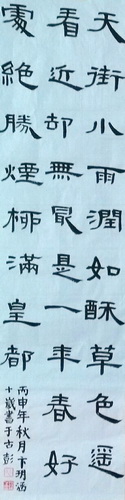 天街小雨潤如酥草色遥
看近却無最是一年春好
處絶勝煙柳滿皇都
丙申年秋月卞玥涵
十歲書于古彭